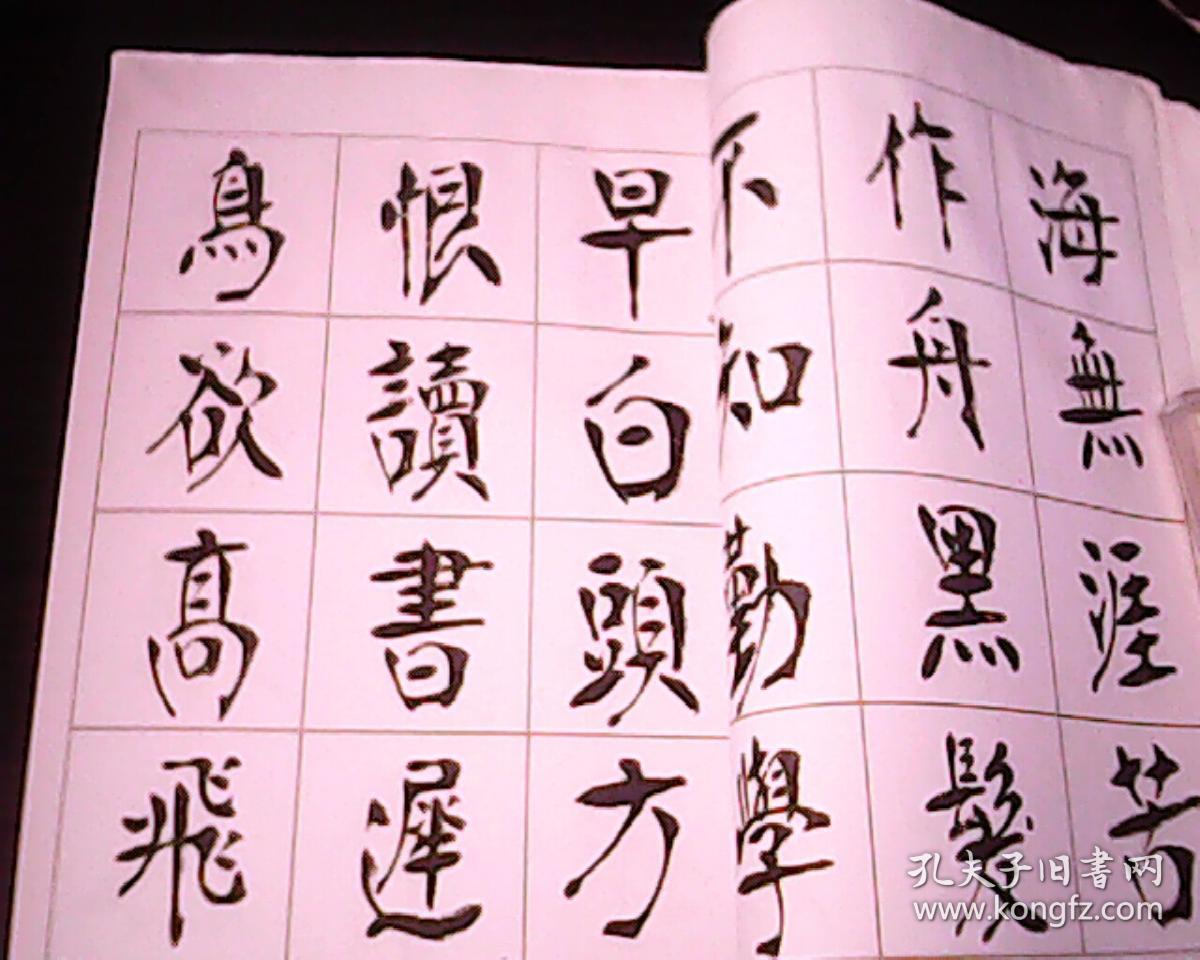 海無涯苦
作舟黑髮
不知勤學
早白頭方
恨讀書遲
鳥欲高飛
孔夫子旧书网
www.kongfz.com